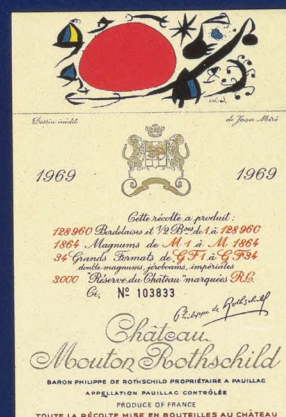 Dessin inédit de Joan Miró
1969 1969
Cette récolte a produit :
128960 Bordelaises et 1/2 Bses de 1 à 128960
1864 Magnums de M 1 à M 1864
34 Grands Formats de GF1 à GF34
double magnums, jeroboams, impériales
3000 "Réserve du Château" marquées R.C.
Ci, Nº 103833
Philippe de Rothschild
Château
Mouton Rothschild
BARON PHILIPPE DE ROTHSCHILD PROPRIÉTAIRE A PAUILLAC
APPELLATION PAUILLAC CONTRÔLÉE
PRODUCE OF FRANCE
TOUTE LA RÉCOLTE MISE EN BOUTEILLES AU CHÂTEAU